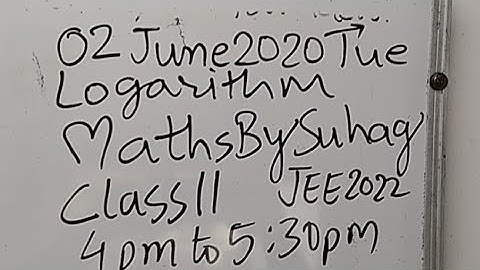 02 June 2020 Tue
Logarithm
MathsBySuhag
Class 11 JEE2022
4pm to 5:30pm